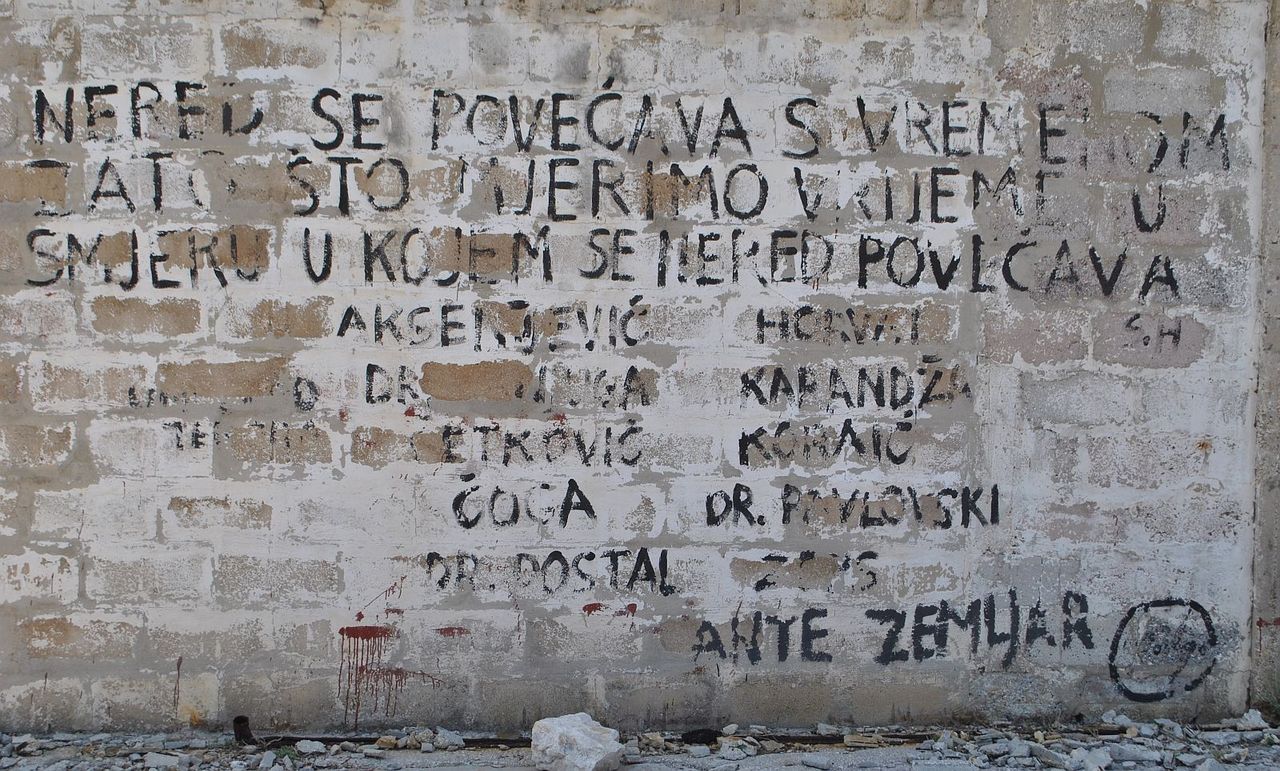 NERED SE POVEĆAVA S VREMENOM
ZATO ŠTO MJERIMO VRIJEME U
SMJERU U KOJEM SE NERED POVEĆAVA
AKSENTJEVIĆ HORVAT S.H
DR. KAPANDŽA
ETKOVIĆ KORAIĆ
ĆOĆA DR. PAVLOVSKI
DR. DOSTAL
ANTE ZEMLJAR